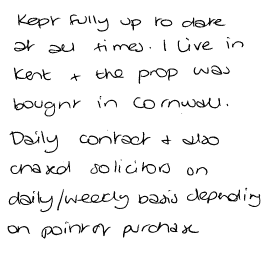 Kept fully up to date
at all times. I live in
Kent + the prop was
bought in Cornwall.
Daily contact + also
chased solicitors on
daily/weekly basis depending
on point of purchase